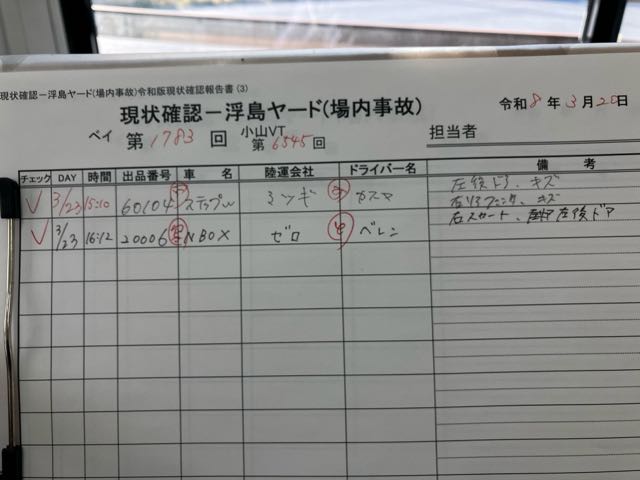 現状確認－浮島ヤード(場内事故)令和版現状確認報告書(3)
現状確認－浮島ヤード(場内事故)
令和 8 年 3 月 20 日
ベイ 第 1783 回 小山VT 第 6545 回
担当者
チェック DAY 時間 出品番号 車 名 陸運会社 ドライバー名 備 考
3/23 15:10 60104 ステップW ミツギ カスヤ 左後ドア、キズ
右リアフェンダ、キズ
3/23 16:12 20006 NBOX ゼロ ベレン 右スカート、左後ドア